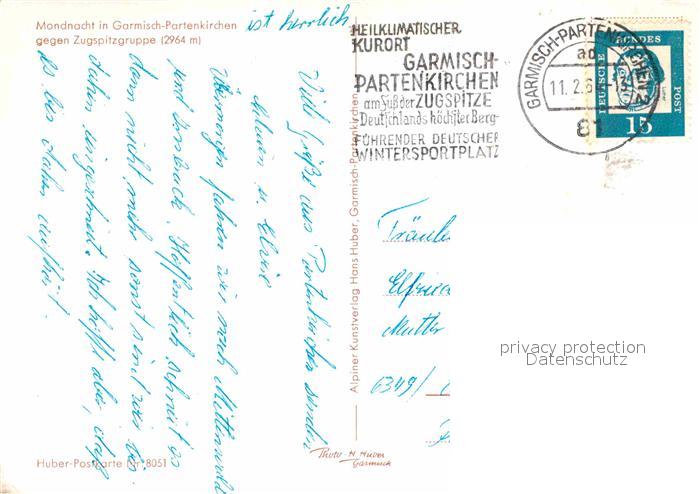 Mondnacht in Garmisch-Partenkirchen
gegen Zugspitzgruppe (2964 m)
ist herrlich
Viele Grüße aus Partenkirchen senden
Übermorgen fahren wir nach Mittenwald
und Innsbruck. Hoffentlich schneit es
dann nicht mehr sonst sind wir bis
dahin eingeschneit. Ich hoffe aber, daß
es bis dahin aufhört.
Huber-Postkarte Nr. 8051
Alpiner Kunstverlag Hans Huber, Garmisch-Partenkirchen
Photo H. Huber
Garmisch
HEILKLIMATISCHER
KURORT
GARMISCH-
PARTENKIRCHEN
am Fuß der ZUGSPITZE
Deutschlands höchster Berg-
FÜHRENDER DEUTSCHER
WINTERSPORTPLATZ
GARMISCH-PARTENKIRCHEN 2
ad
11.2.6
81
DEUTSCHE BUNDES POST
15
6349/
privacy protection
Datenschutz